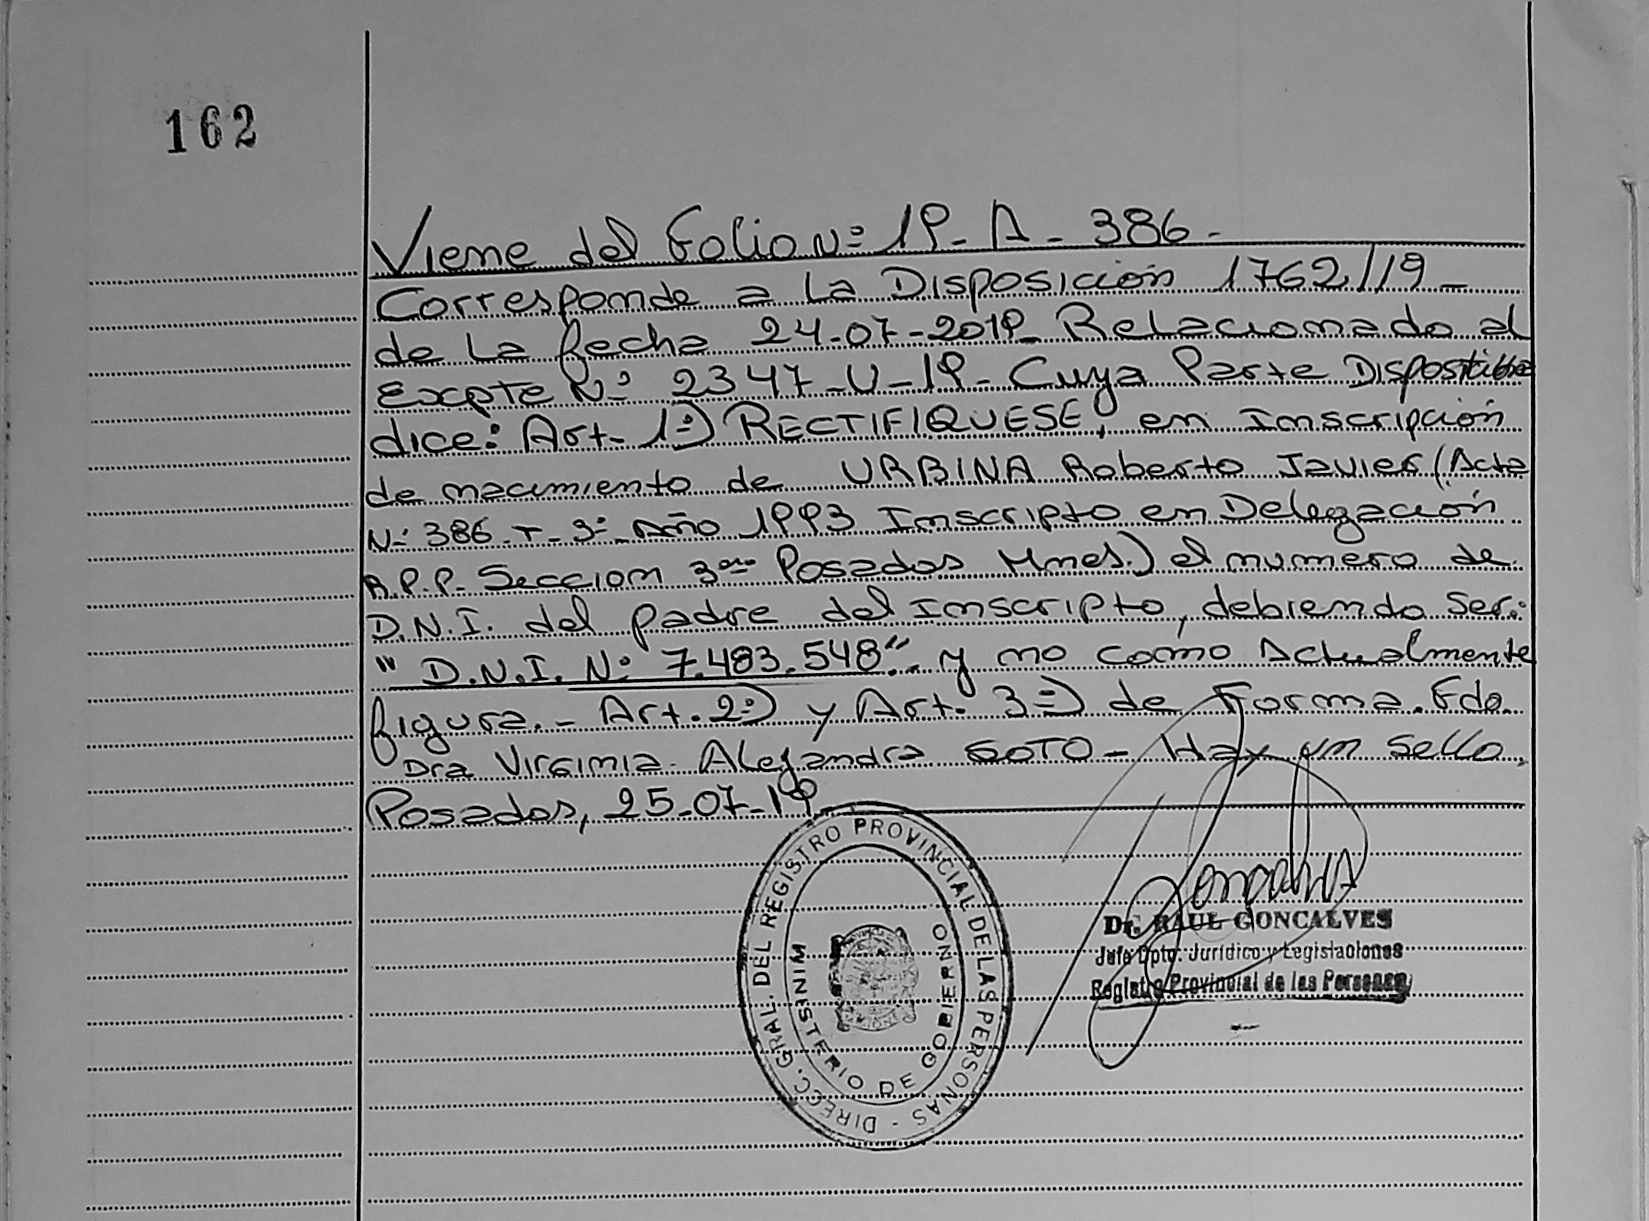 162
Viene del Folio Nº 19- A - 386.-
Corresponde a la Disposición 1762//19-
de la fecha 24-07-2019- Relacionado al
Expte Nº 2347-U-19- Cuya Parte Dispositiva
dice: Art- 1º) RECTIFIQUESE, en Inscripción
de nacimiento de URBINA Roberto Javier (Acta
Nº 386-T-3º-Año 1993 Inscripto en Delegación
R.P.P. Seccion 3era Posadas Mnes.) el numero de
D.N.I. del padre del Inscripto, debiendo ser:
"D.N.I. Nº 7.483.548". y no como Actualmente
figura.- Art.2º) y Art. 3º) de Forma. Fdo.
Dra Virginia Alejandra SOTO- Hay un sello.
Posadas, 25-07-19
DIRECC. GRAL. DEL REGISTRO PROVINCIAL DE LAS PERSONAS -
MINISTERIO DE GOBIERNO
Dr. RAUL GONCALVES
Jefe Dpto. Jurídico y Legislaciones
Registro Provincial de las Personas